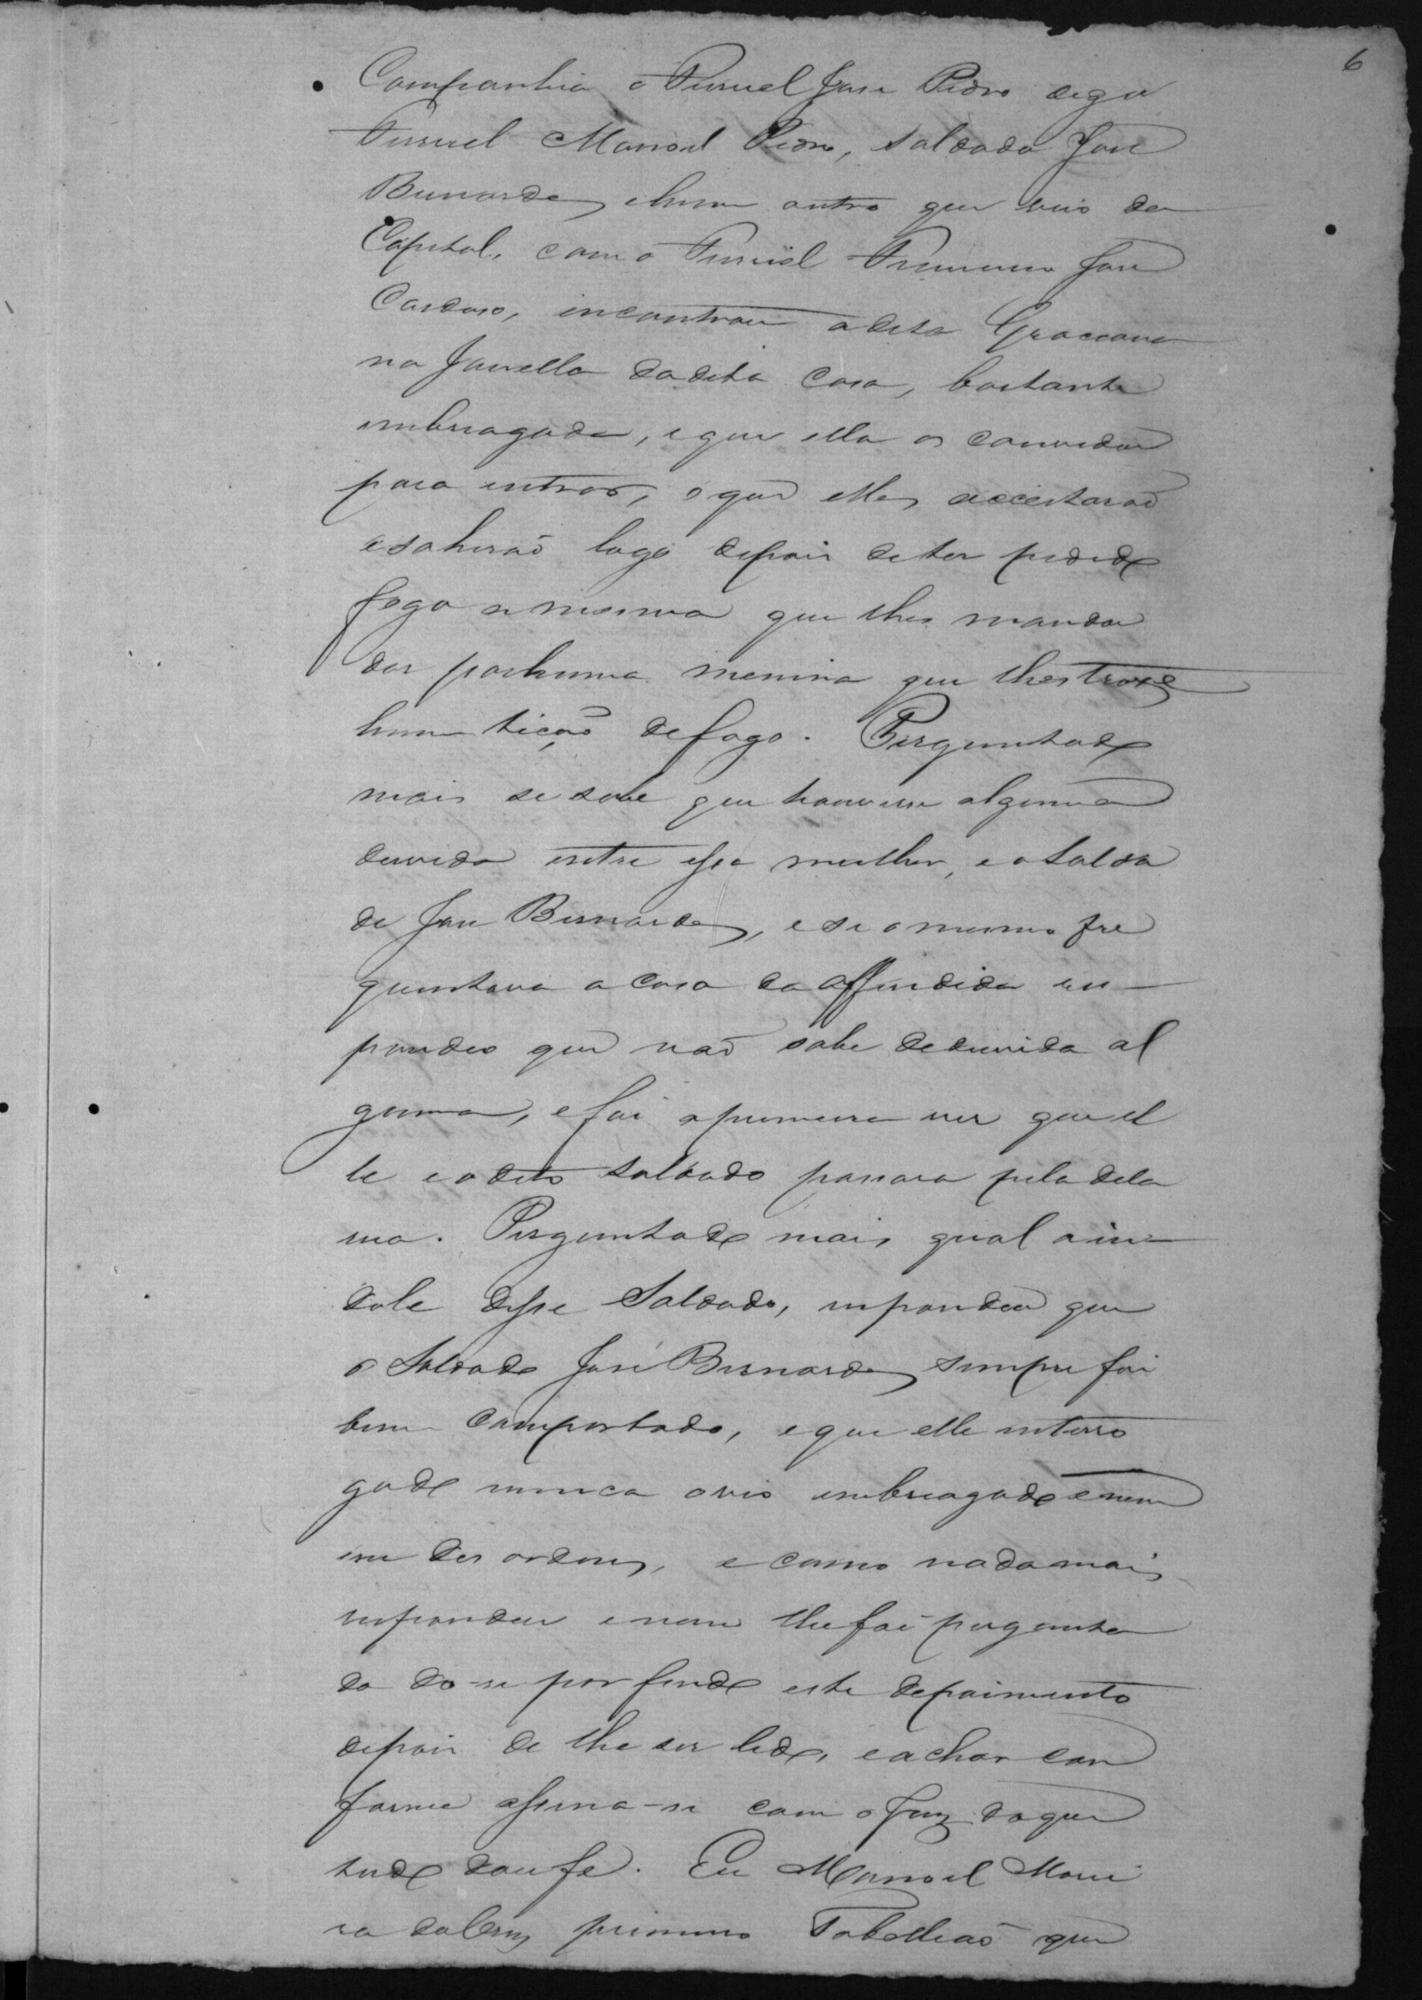 6
Companhia o Furriel Jose Pedro digo
Furriel Manoel Pedro, soldado Jose
Bernardes, e hum outro que veio da
Capital, com o Furriel Francisco Jose
Cardoso, incontrou a dita Graciana
na Janella da dita casa, bastante
embriagada, e que ella os convidou
para entrar, o que elles acceitaraõ
e sahiraõ logo depois de ter pedido
fogo a mesma que lhes mandou
dar por huma menina que lhes troxe
hum tiçaõ de fogo. Perguntado
mais se sabe que houvesse alguma
duvida entre essa mulher, e o Solda
do Jose Bernardes, e se o mesmo fre
quentava a casa da offendida res
pondeo que naõ sabe de duvida al
guma, e foi a primeira vez que el
le e o dito soldado passara pela dela
ma. Perguntado mais qual a in
dole desse Soldado, respondeu que
o Soldado José Bernardes sempre foi
bem comportado, e que elle interro
gado nunca o vio embriagado e nem
em des ordens, e como nada mais
respondeu e nem lhe foi pergunta
do do-se por findo este depoimento
depois de lhe ser lido, e achar con
forme assina-se com o Juiz do que
tudo dou fe. Eu Manoel Morei
ra da Cruz primeiro Tabelliaõ que